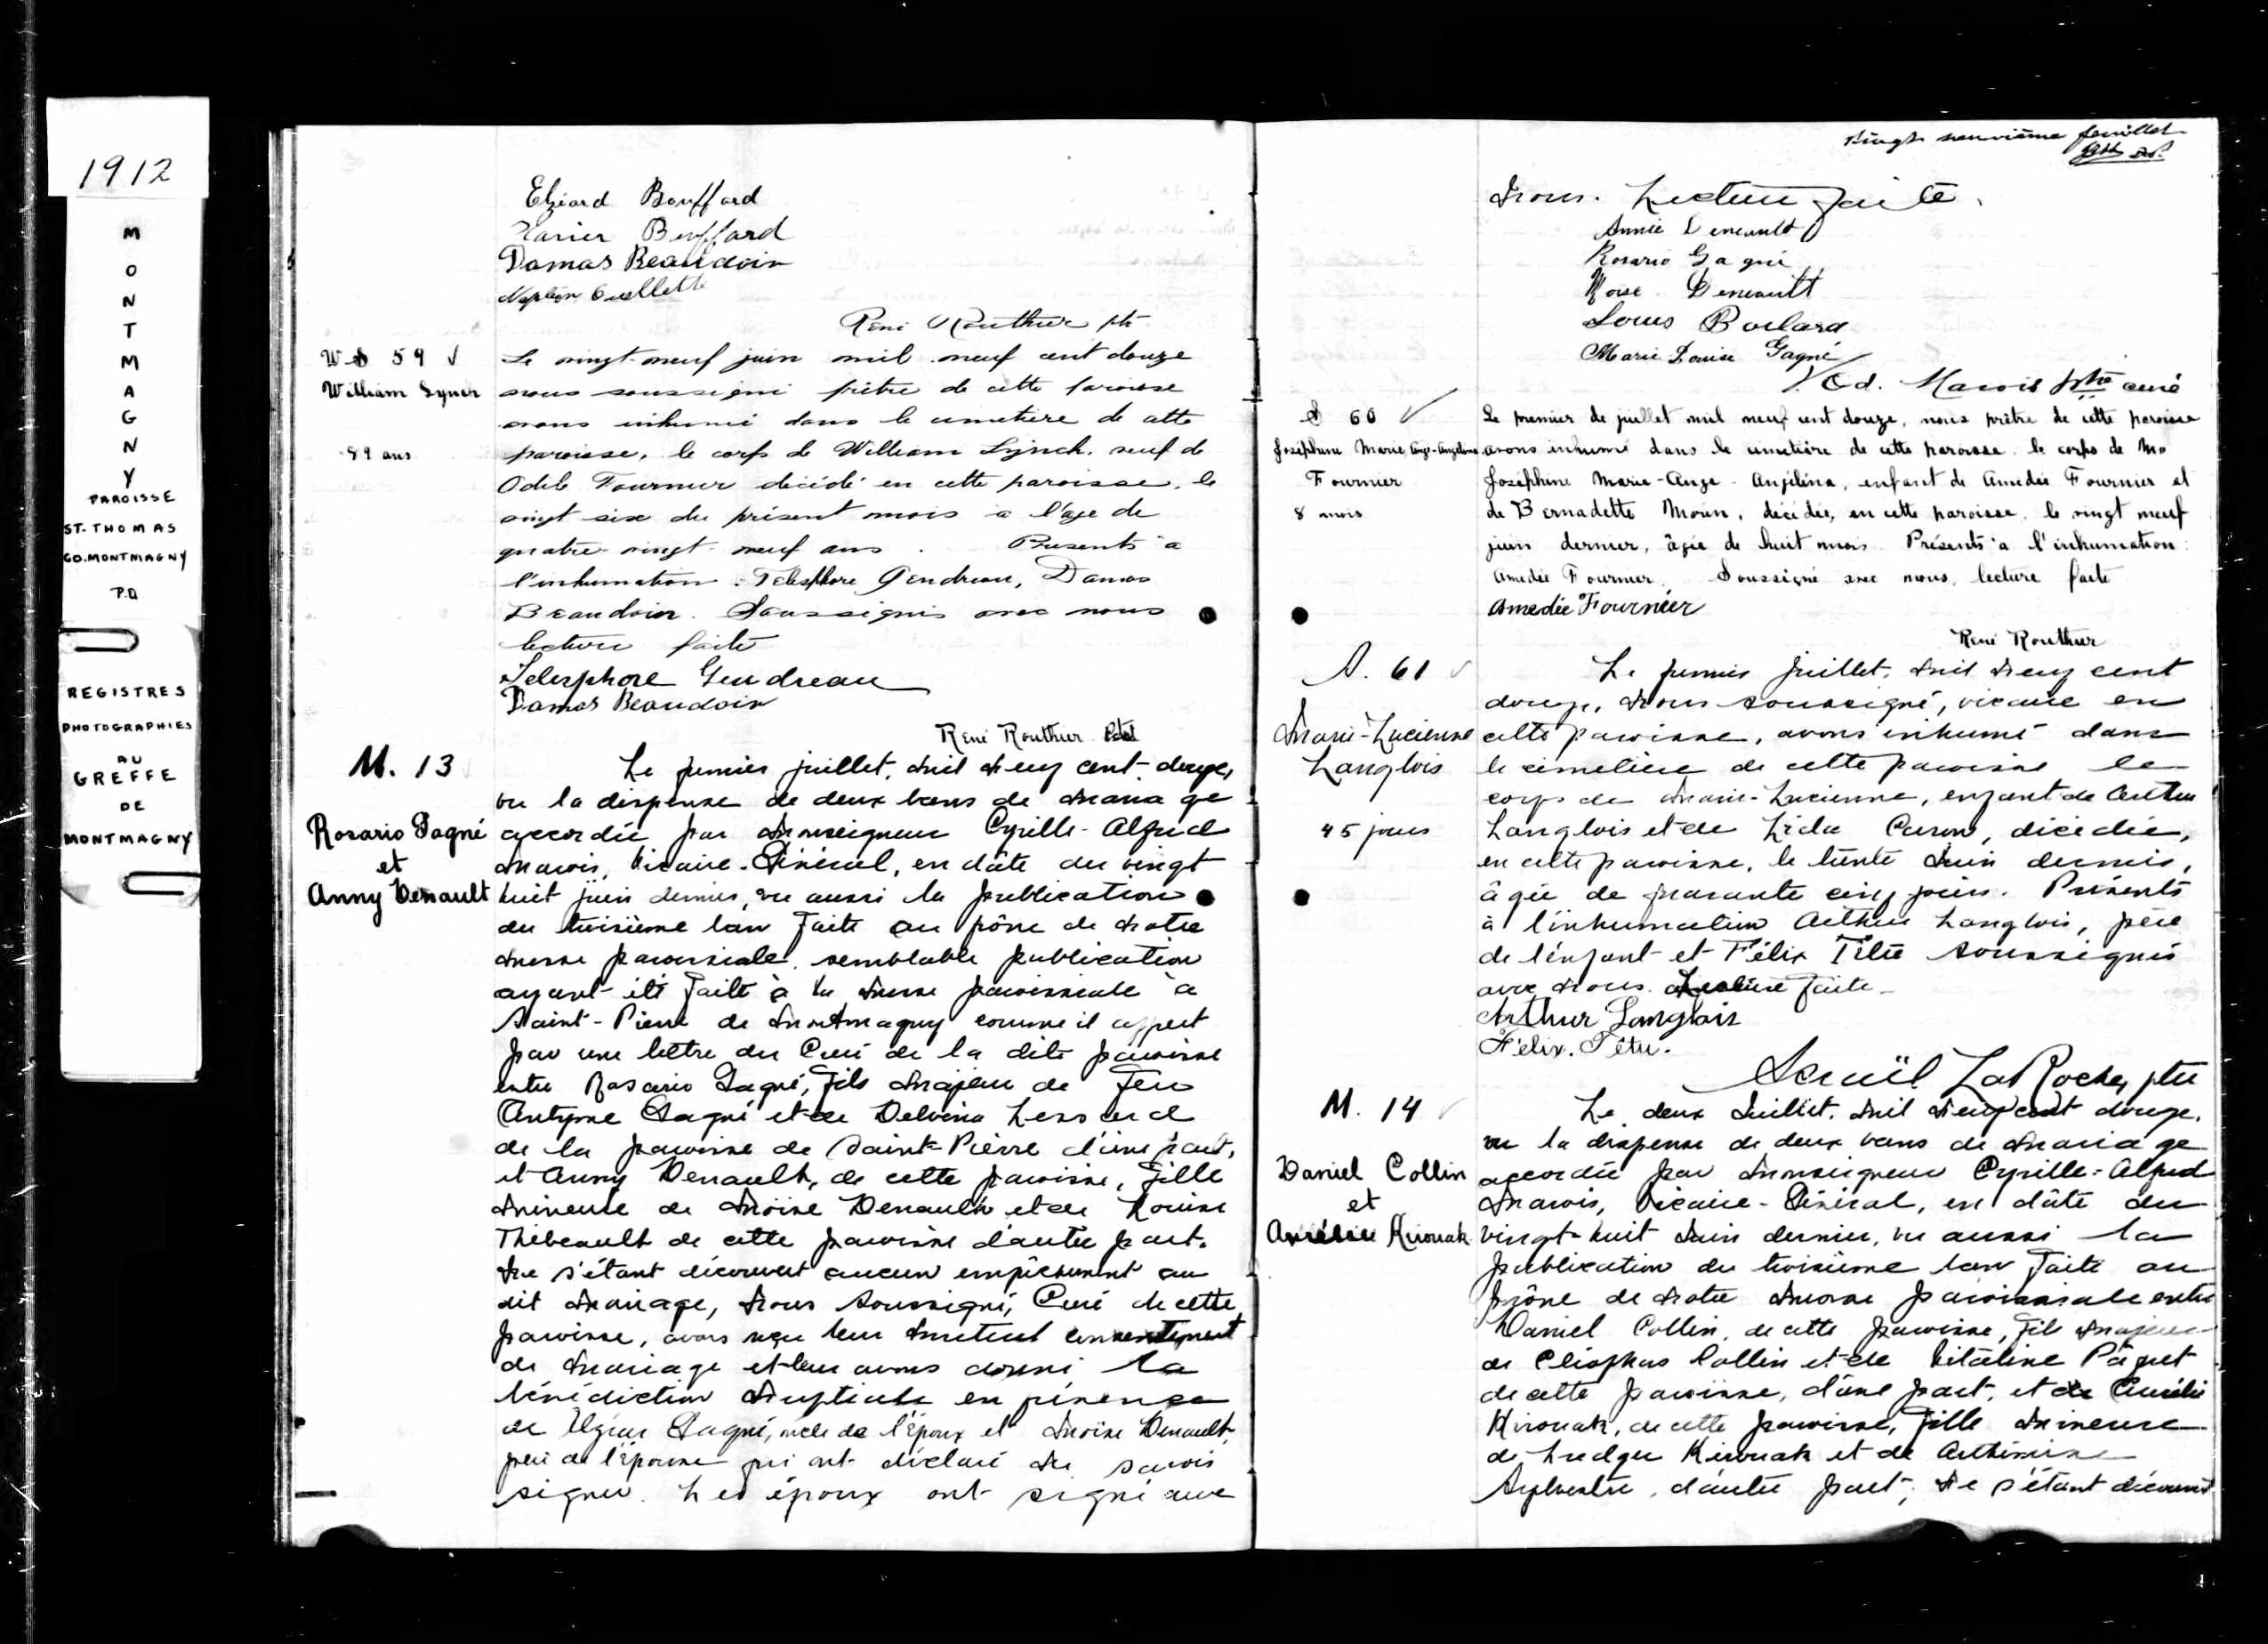 1912
MONTMAGNY
PAROISSE
ST-THOMAS
CO. MONTMAGNY
P.Q
REGISTRES
PHOTOGRAPHIES
AU
GREFFE
DE
MONTMAGNY
Elzéard Bouffard
Xavier Bouffard
Damas Beaudoin
Napoléon Ouellette
René Routhier ptr
S 59
William Lynch
89 ans
Le vingt-neuf juin mil neuf cent douze
nous soussigné prêtre de cette paroisse
avons inhumé dans le cimetière de cette
paroisse, le corps de William Lynch, veuf de
Odile Fournier décédé en cette paroisse, le
vingt six du présent mois à l'âge de
quatre-vingt-neuf ans. Présents à
l'inhumation: Télesphore Gendreau, Damas
Beaudoin. Soussignés avec nous
lecture faite
Telesphore Gendreau
Damas Beaudoin
René Routhier
M. 13
Rosario Gagné
et
Anny Denault
Le premier juillet, mil neuf cent douze,
vu la dispense de deux bans de mariage
accordée par Monseigneur Cyrille-Alfred
Marois, Vicaire-Général, en dâte du vingt
huit juin dernier, vu aussi la publication
du troisième ban faite au prône de notre
messe paroissiale, semblable publication
ayant été faite à la messe paroissiale à
Saint-Pierre de Montmagny comme il appert
par une lettre du Curé de la dite paroisse
entre Rosario Gagné, fils majeur de feu
Gagné et de Delvina Lessard
de la paroisse de Saint-Pierre d'une part,
et Anny Denault, de cette paroisse, fille
mineure de Moïse Denault et de Louise
Thibeault de cette paroisse d'autre part.
Ne s'étant découvert aucun empêchement au
dit mariage, Nous soussigné, Curé de cette
paroisse, avons reçu leur mutuel consentement
de mariage et leur avons donné la
bénédiction nuptiale en présence
de Gagné, oncle de l'époux et Moïse Denault,
père de l'épouse qui ont déclaré ne savoir
signer. Les époux ont signé avec
Vingt neuvième feuillet
nous. Lecture faite.
Annie Deneault
Rosario Gagné
Moise Deneault
Louis Boulard
Marie Louise Gagné
Od. Marois ptre curé
S 60
Joséphine Marie Ange-Angélina
Fournier
8 mois
Le premier de juillet mil neuf cent douze, nous prêtre de cette paroisse
avons inhumé dans le cimetière de cette paroisse le corps de M
Joséphine Marie-Ange-Anjélina, enfant de Amedée Fournier et
de Bernadette Morin, décédée, en cette paroisse, le vingt neuf
juin dernier, âgée de huit mois. Présents à l'inhumation:
Amedée Fournier. Soussigné avec nous, lecture faite
Amedée Fournier
René Routhier
S. 61
Marie-Lucienne
Langlois
45 jours
Le premier juillet, mil neuf cent
douze, nous soussigné, vicaire en
cette paroisse, avons inhumé dans
le cimetière de cette paroisse le
corps de Marie-Lucienne, enfant de Arthur
Langlois et de Lida Caron, décédée,
en cette paroisse, le trente Juin dernier,
âgée de quarante cinq jours. Présents
à l'inhumation Arthur Langlois, père
de l'enfant et Félix Têtu soussignés
avec nous. Lecture faite.
Arthur Langlois
Félix. Têtu.
LaRoche, ptre
M. 14
Daniel Collin
et
Aurélie Kirouak
Le deux Juillet, mil neuf cent douze,
vu la dispense de deux bans de mariage
accordée par Monseigneur Cyrille-Alfred
Marois, Vicaire-Général, en dâte du
vingt-huit Juin dernier, vu aussi la
publication du troisième ban faite au
prône de notre messe paroissiale entre
Daniel Collin, de cette paroisse, fils majeur
de Cléophas Collin et de Vitaline Pâquet
de cette paroisse, d'une part, et de Aurélie
Kirouak, de cette paroisse, fille mineure
de Ludger Kirouak et de Arthémise
Sylvestre, d'autre part; Ne s'étant découvert